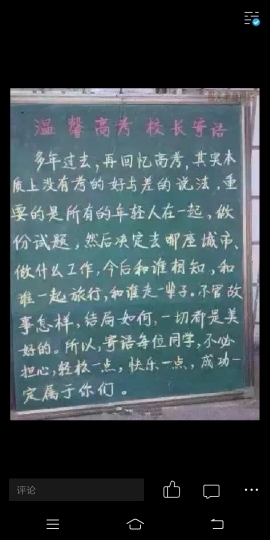 温馨高考 校长寄语
多年过去，再回忆高考，其实本
质上没有考的好与差的说法，重
要的是所有的年轻人在一起，做
份试题，然后决定去哪座城市，
做什么工作，今后和谁相知，和
谁一起旅行，和谁走一辈子。不管故
事怎样，结局如何，一切都是美
好的。所以，寄语每位同学，不必
担心，轻松一点，快乐一点，成功一
定属于你们。
评论